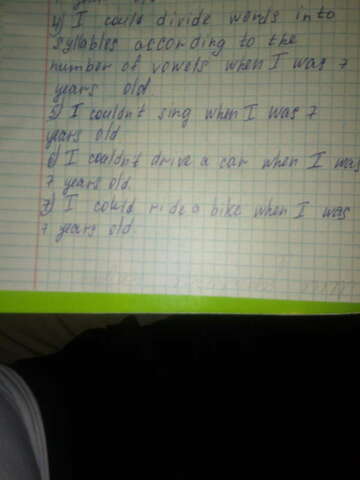 4) I could divide words into
syllables according to the
number of vowels when I was 7
years old.
5) I couldn't sing when I was 7
years old
6) I couldn't drive a car when I was
7 years old.
7) I could ride a bike when I was
7 years old